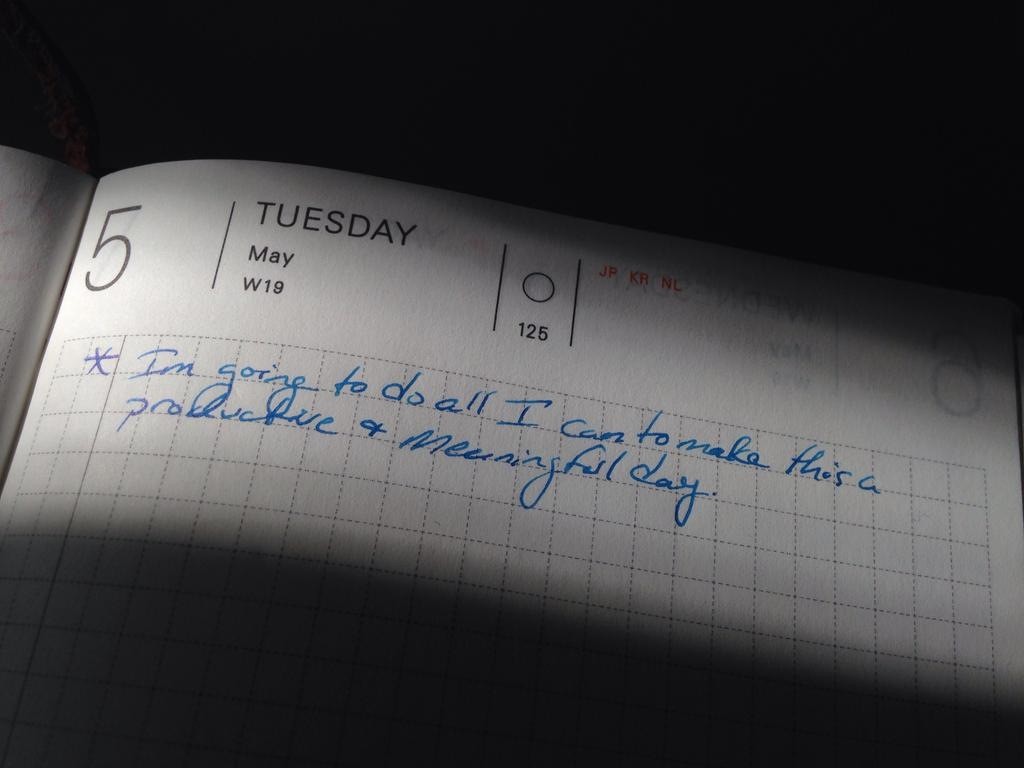 5
TUESDAY
May
W19
125
JP KR NL
* Im going to do all I can to make this a
productive & meaningful day.
WEDNESDAY
May
6